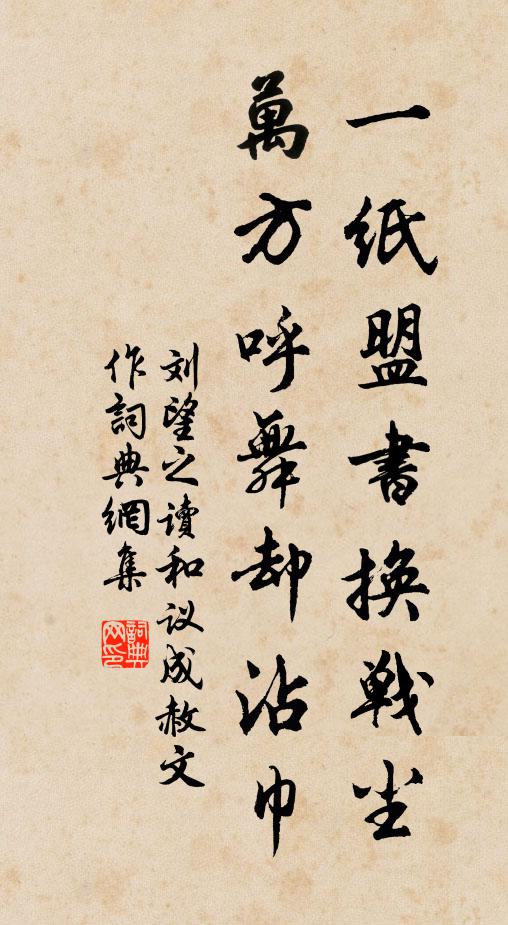 一紙盟書換戦尘
萬方呼舞却沾巾
刘望之读和议成赦文
作詞典網集
詞典網印